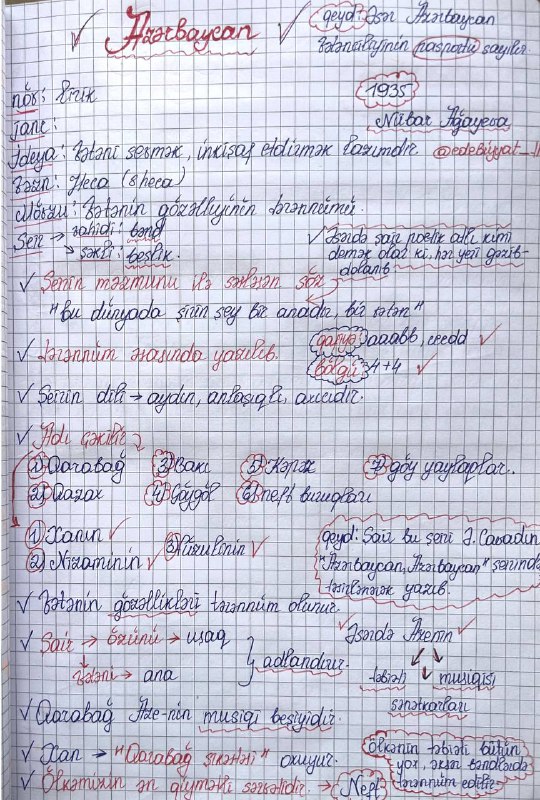 Azərbaycan
qeyd: Əsər Azərbaycan
Vətəndaşlığının pasportu sayılır.
1935
növ: lirik
janr:
Nübar Ağayeva
İdeya: Vətəni sevmək, inkişaf etdirmək lazımdır. @edebiyyat_
Vəzn: Heca (8 heca)
Mövzu: Vətənin gözəlliyinin tərənnümü.
Şeir → vahidi: bənd
→ şəkli: beşlik.
✓ Əsərdə şair poetik dili kimi
demək olar ki, hər yeri gəzib-
dolanıb
✓ Şeirin məzmunu ilə səsləşən söz
"bu dünyada şirin şey bir anadır, bir vətən"
✓ tərənnüm əsasında yazılıb.
qafiyə aaabb, cccdd ✓
bölgü 4+4 ✓
✓ Şeirin dili → aydın, anlaşıqlı, axıcıdır.
✓ Adı çəkilir
1) Qarabağ 3) Bakı 5) Kəpəz 7) göy yaylaqlar.
2) Qazax 4) Göygöl 6) neft buruqları
1) Xanın ✓
2) Nizaminin ✓ 3) Füzulinin ✓
qeyd: Şair bu şeiri Ə. Cavadın
"Azərbaycan, Azərbaycan" şeirində
təsirlənərək yazıb.
✓ Vətənin gözəllikləri tərənnüm olunur.
✓ Şair → özünü → uşaq
Vətəni → ana
adlandırır.
Əsərdə Azənin ✓
təbiəti musiqisi
sənətkarları
✓ Qarabağ Aze-nin musiqi beşiyidir.
✓ Xan → "Qarabağ şikəstəsi" oxuyur.
✓ Ölkəmizin ən qiymətli sərvətidir. → Neft
Ölkənin təbiəti bütün
yox, əksər bəndlərdə
tərənnüm edilir